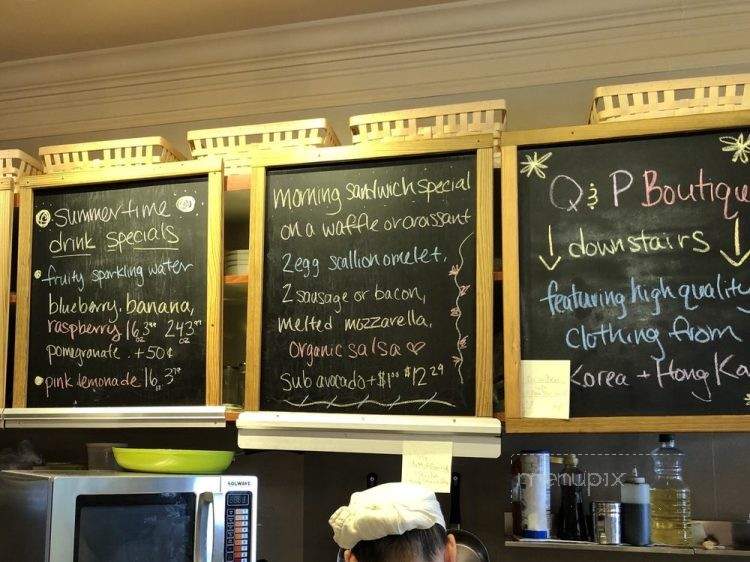 summertime
drink specials
fruity sparkling water
blueberry, banana,
raspberry 16oz 3.99 24oz 3.99
pomegranate. +50¢
pink lemonade 16oz 3.99
morning sandwich special
on a waffle or croissant
2 egg scallion omelet,
2 sausage or bacon,
melted mozzarella,
organic salsa ♡
Sub avocado + $1.00 $12.29
Q & P Boutique
downstairs
featuring high quality
clothing from
Korea + Hong Ka
SOLWAVE
menupix